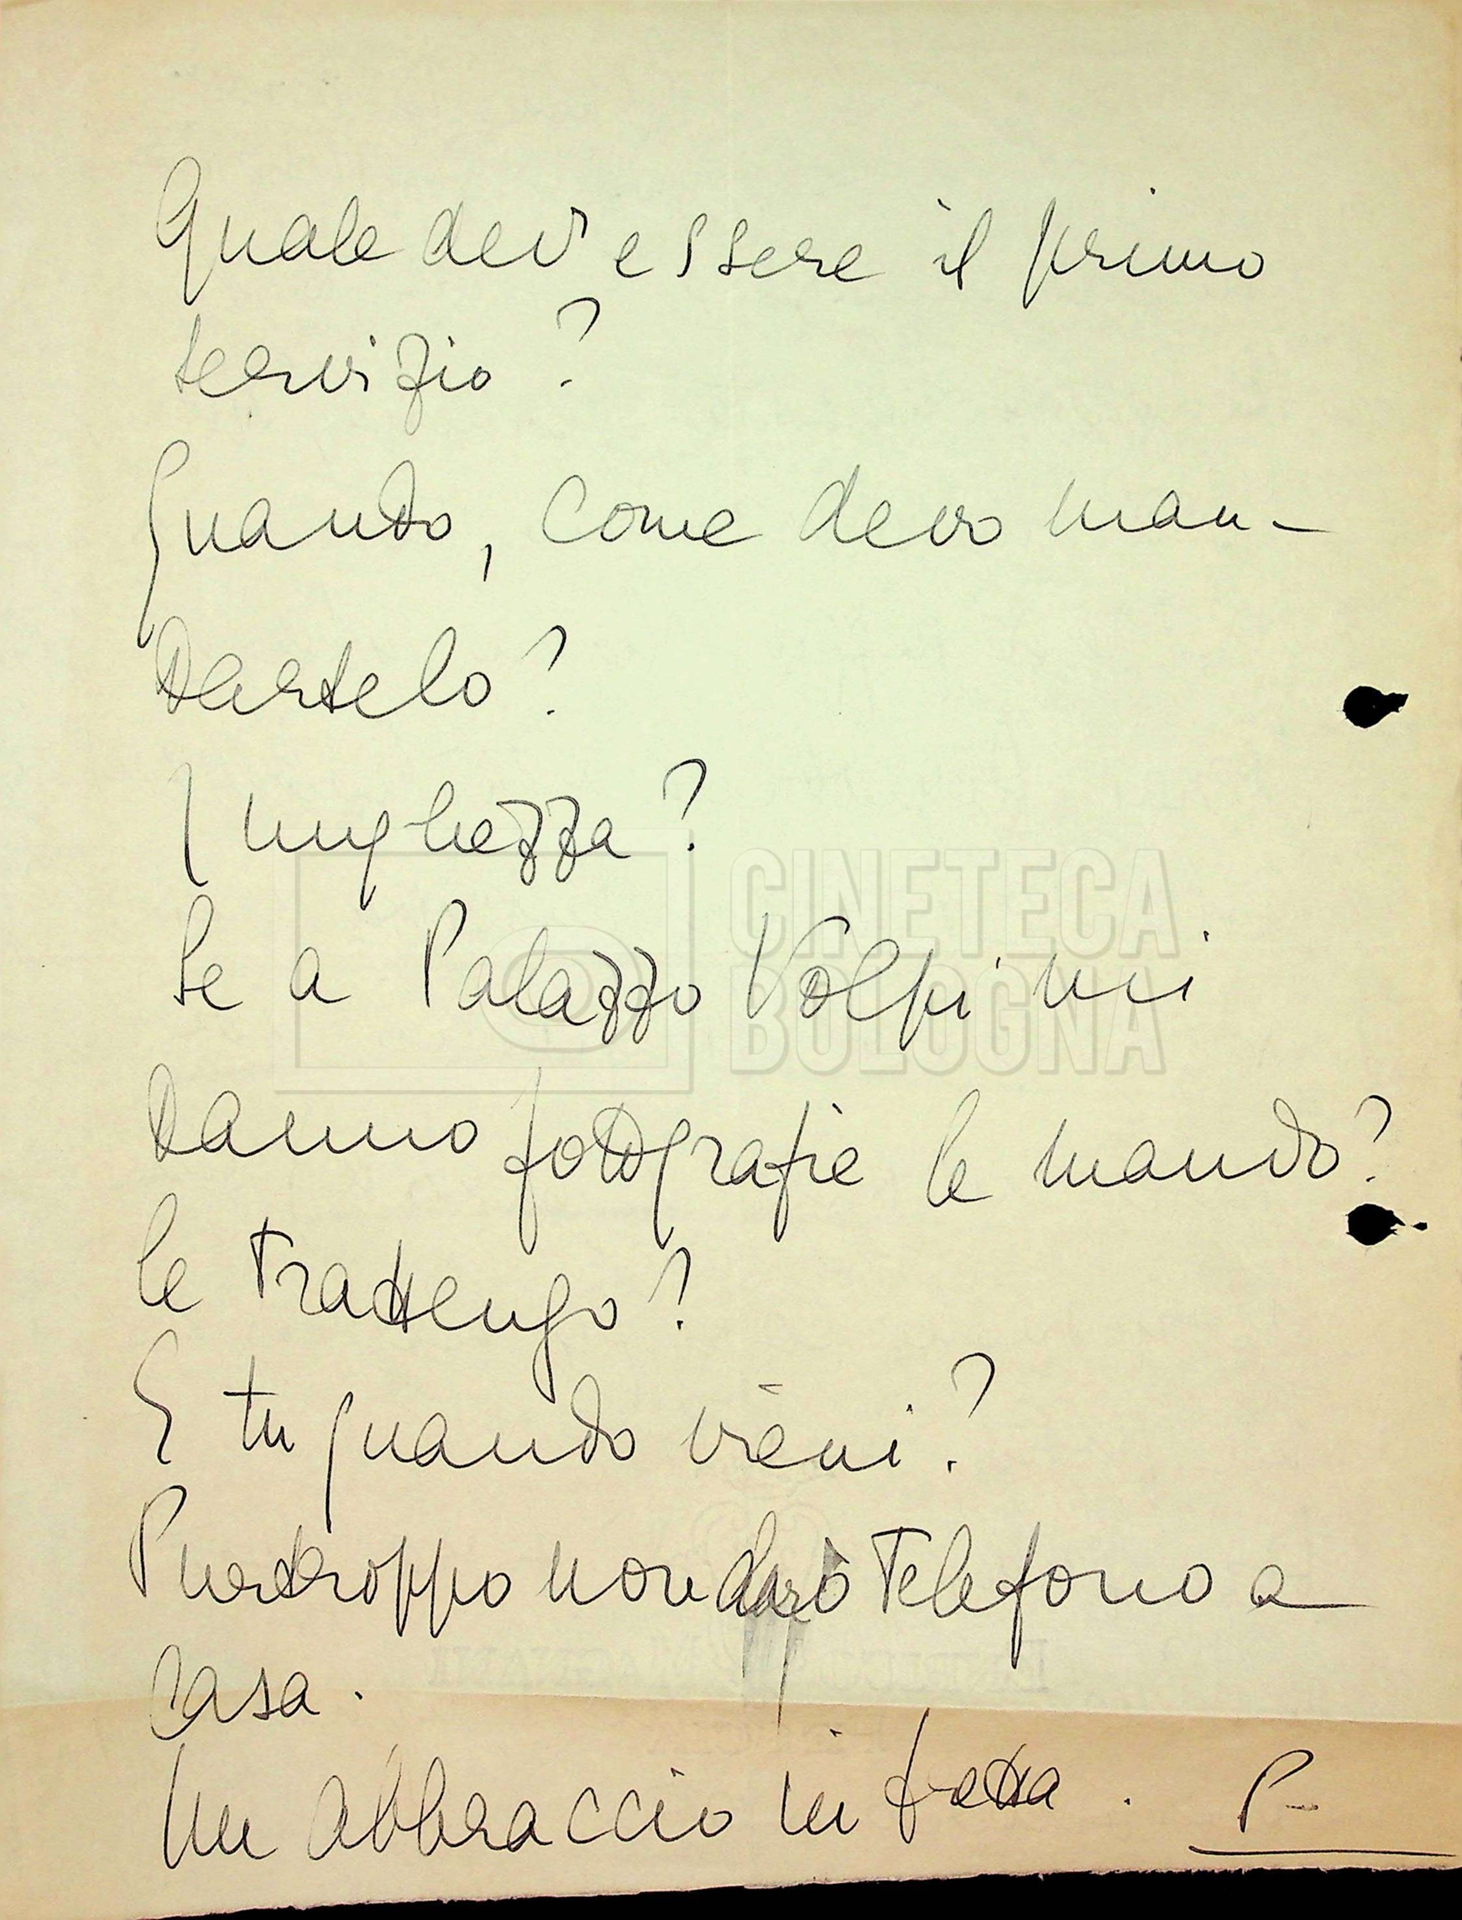 Quale dev'essere il primo
servizio?
Quando, come devo man-
dartelo?
Lunghezza?
Se a Palazzo Volpi mi
CINETECA
BOLOGNA
danno fotografie le mando?
le trattengo?
E tu quando vieni?
Purtroppo non darò telefono a
casa.
Un abbraccio in fretta. P-